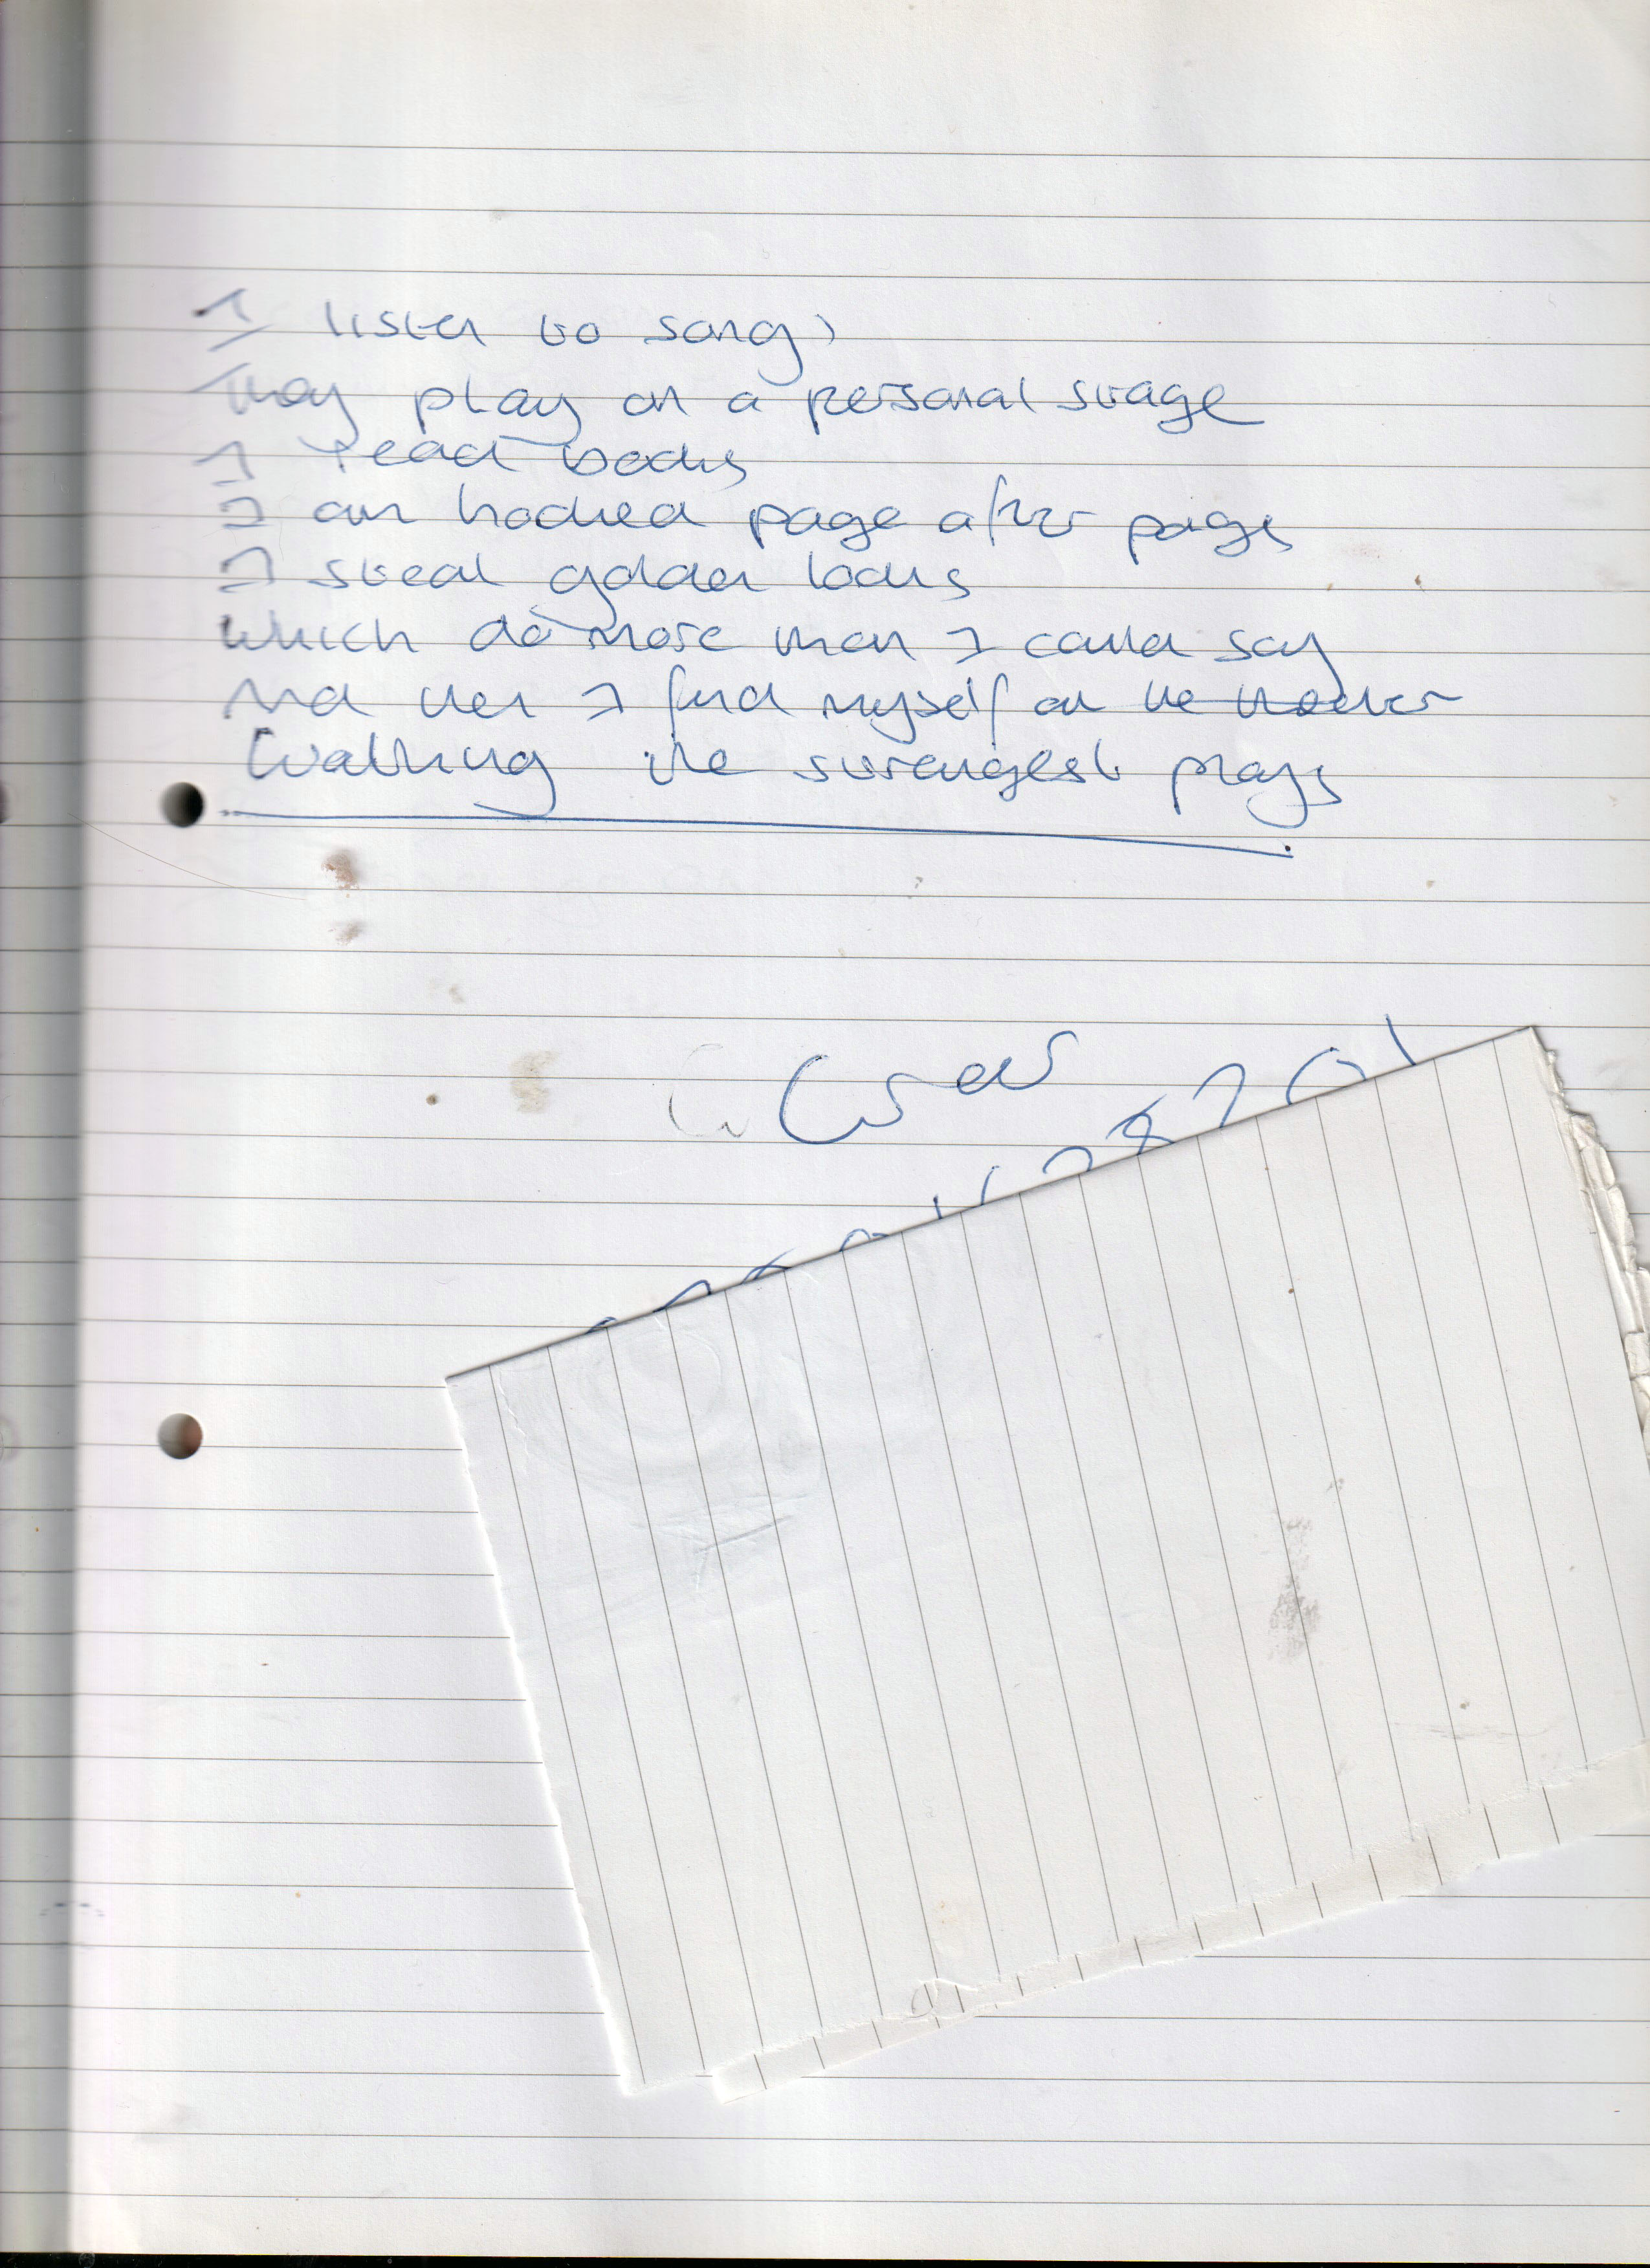 I listen to songs
They play on a personal stage
I read books
I am hooked page after page
I steal golden locks
which do more than I could say
And then I find myself on the
Walking the strangest plays